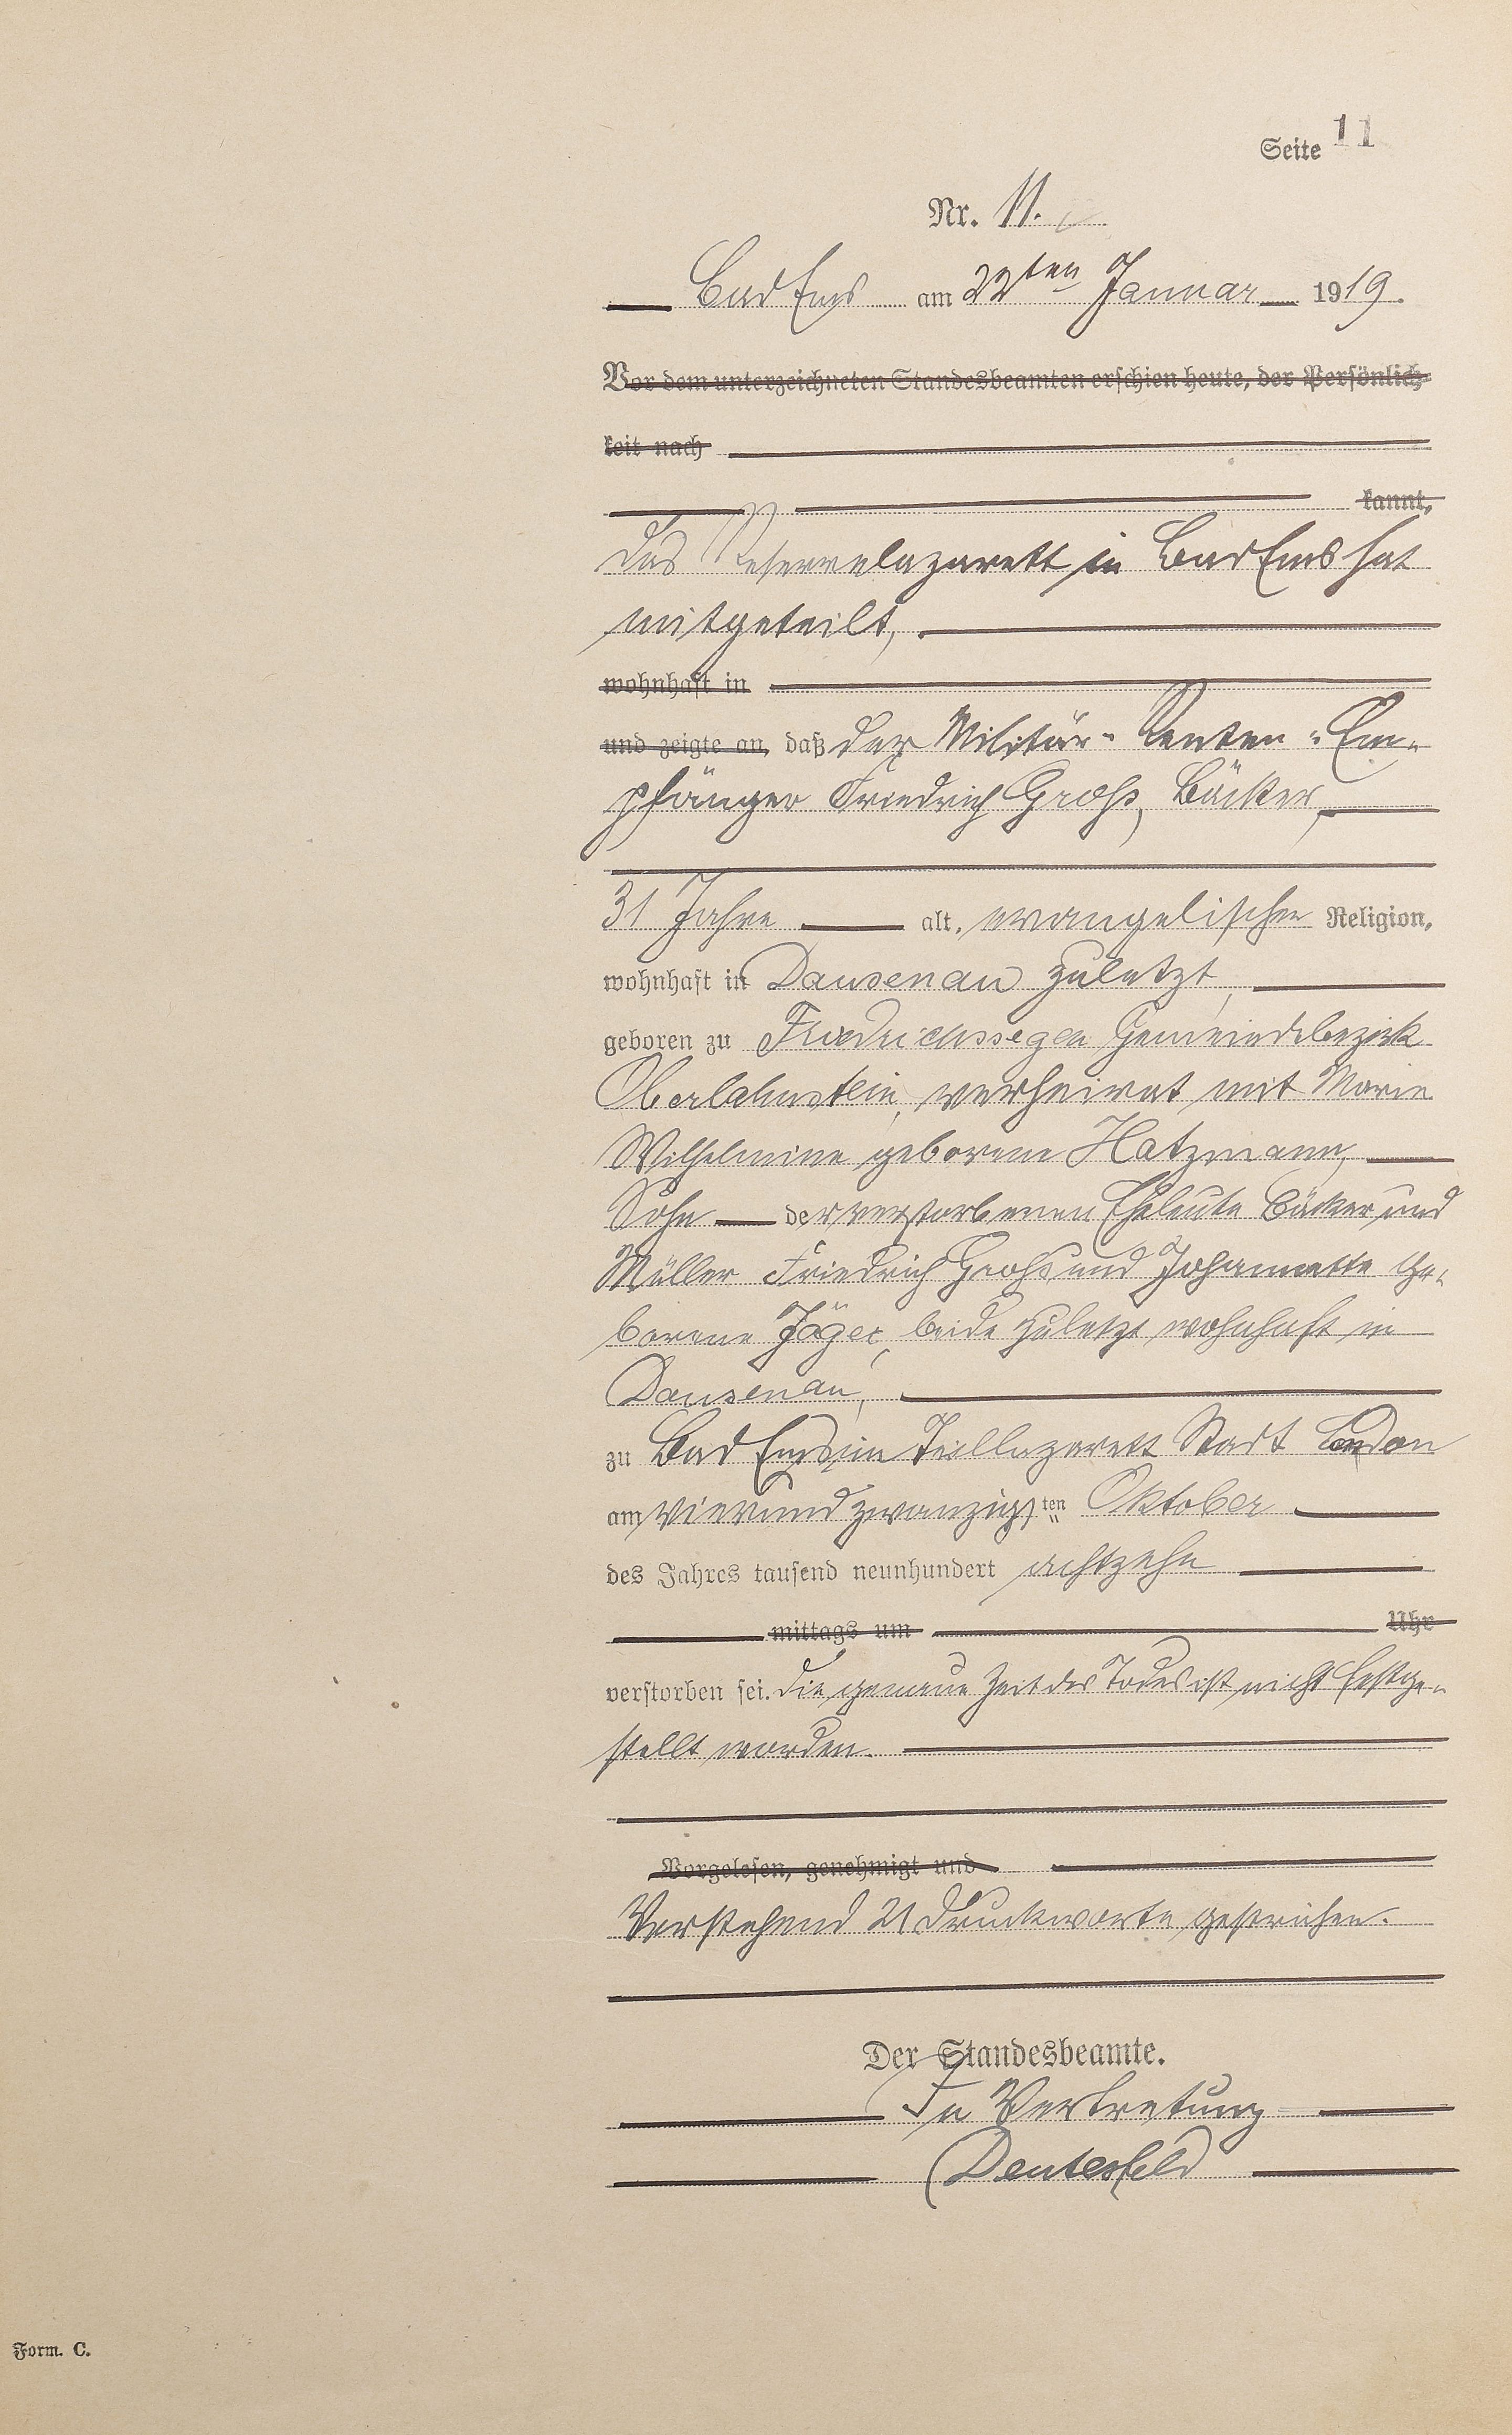 Seite 11
Nr. 11.
Bad Ems am 22ten Januar 1919.
Vor dem unterzeichneten Standesbeamten erschien heute, der Persönlich-
keit nach
kannt,
Das Reservelazarett in Bad Ems hat
mitgeteilt,
wohnhaft in
und zeigte an, daß der Militär-Renten-Em-
pfänger Friedrich Groß, Bäcker,
31 Jahre alt, evangelischer Religion,
wohnhaft in Dausenau zuletzt,
geboren zu Friedrichssegen Gemeindebezirk
Oberlahnstein, verheirat mit Marie
Wilhelmine geborene Hatzmann,
Sohn der verstorbenen Eheleute Bäcker und
Müller Friedrich Groß und Johannette ge-
borene Jäger, beide zuletzt wohnhaft in
Dausenau,
zu Bad Ems, im Teillazarett Stadt London
am vierundzwanzigsten Oktober
des Jahres tausend neunhundert achtzehn
mittags um Uhr
verstorben sei. Die genaue Zeit des Todes ist nicht festge-
stellt worden.
Vorgelesen, genehmigt und
Vorstehend 21 Druckworte gestrichen.
Der Standesbeamte.
In Vertretung
Form. C.